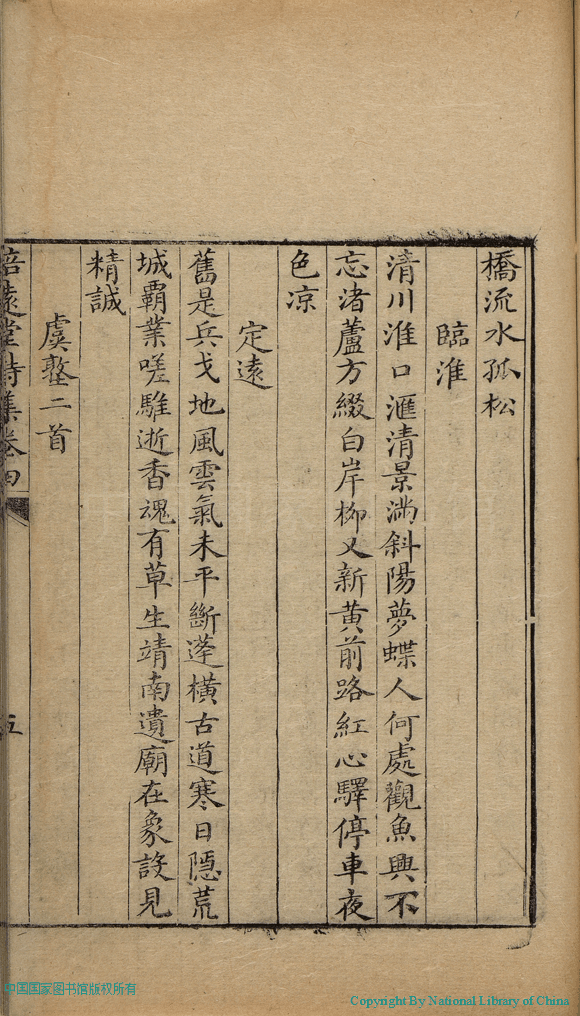 橋流水孤松
臨淮
清川淮口滙清景滿斜陽夢蝶人何處觀魚興不
忘渚蘆方綴白岸柳又新黄前路紅心驛停車夜
色凉
定遠
舊是兵戈地風雲氣未平斷蓬橫古道寒日隱荒
城霸業嗟騅逝香魂有草生靖南遺廟在象設見
精誠
虞壑二首
培遠堂詩集卷四
五
中国国家图书馆版权所有
Copyright By National Library of China